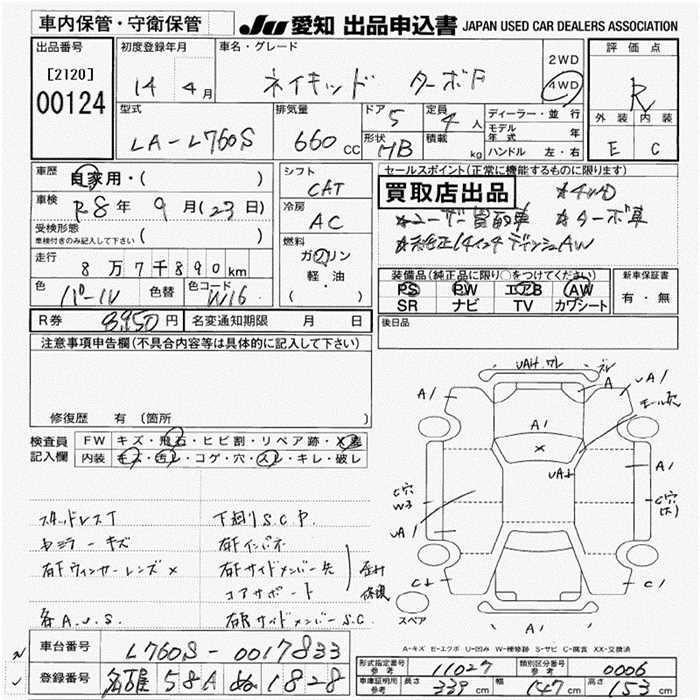 車内保管・守衛保管 JU 愛知 出品申込書 JAPAN USED CAR DEALERS ASSOCIATION
出品番号 初度登録年月 車名・グレード 評価点
[2120] 00124
14年 4月 ネイキッド ターボF 2WD 4WD R
型式 排気量 ドア 5 定員 4人 ディーラー・並行 外装 内装
LA-L760S 660cc 形状 HB 積載 kg モデル年式 年 E C
ハンドル 左・右
車歴 自家用・( ) シフト CAT セールスポイント(正常に機能するものに限ります)
車検 R8年 9月(23日) 冷房 AC 買取店出品 *4WD
受検形態 車検付きのみ記入して下さい ( ) *ユーザー買取車 *ターボ車
走行 8万7千890km 燃料 ガソリン 軽・油 ( ) *純正14インチ AW
色 パール 色替 色コード W16 装備品(純正品に限り○をつけてください) 新車保証書
PS PW エアB AW 有・無
SR ナビ TV カワシート
R券 8,950円 名変通知期限 月 日 後日品
注意事項申告欄(不具合内容等は具体的に記入して下さい)
修復歴 有 (箇所 )
検査員記入欄 FW キズ・飛石・ヒビ割・リペア跡・X要
内装 キズ・汚レ・コゲ・穴・スレ・キレ・破レ
スタッドレスT 下廻りS.C.P.
右ミラーキズ 右Fインパネ
右Fウィンカーレンズ× 右Fサイドメンバー先
コアサポート 歪み修復
各A.U.S. 右Rサイドメンバー S.C.
UAH ワレ ズレ
A1 A UA1
A1 モール穴
X
UA2 A1
C穴 W3 C穴(大)
UA1
C2 C1
A1
スペア
A-キズ E-エクボ U-凹み W-補修跡 S-サビ C-腐食 XX-交換済
車台番号 L760S-0017833
登録番号 名古屋 58A ぬ 1828
形式指定番号 参考 11027 類別区分番号 参考 0006
車庫証明用 参考 長さ 339cm 幅 147cm 高さ 153cm